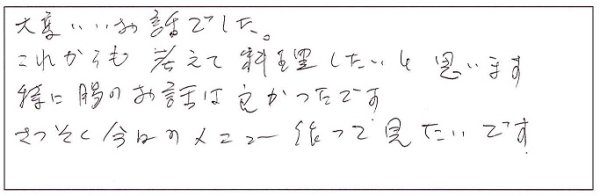 大変いいお話でした。
これからも 考えて 料理したいと 思います
特に腸のお話は良かったです
さっそく今日のメニュー 作って見たいです